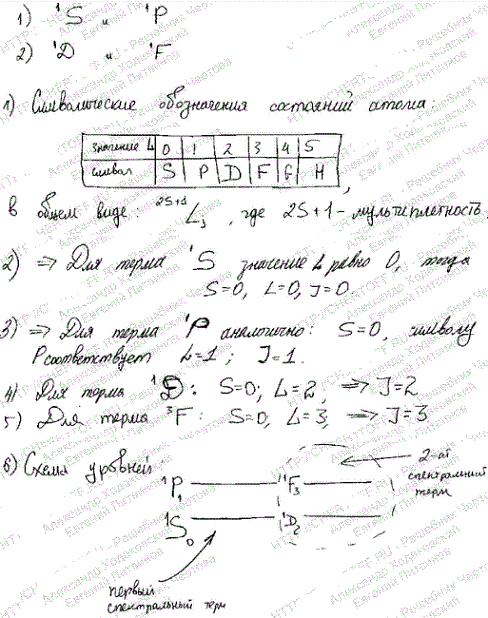 1) ¹S и ¹P
2) ¹D и ¹F
1) Символические обозначения состояний атома.
значение L 0 1 2 3 4 5
символ S P D F G H
,
В общем виде: ²ˢ⁺¹L_J, где 2S+1 - мультиплетность
2) => Для терма ¹S значение L равно 0, тогда
S=0, L=0, J=0.
3) => Для терма ¹P аналогично: S=0, символу
P соответствует L=1; J=1.
4) Для терма ¹D: S=0; L=2, => J=2
5) Для терма ³F: S=0, L=3, => J=3
6) Схема уровней:
2-ой
спектральный
терм
¹P₁ ¹F₃
¹S₀ ¹D₂
первый
спектральный терм